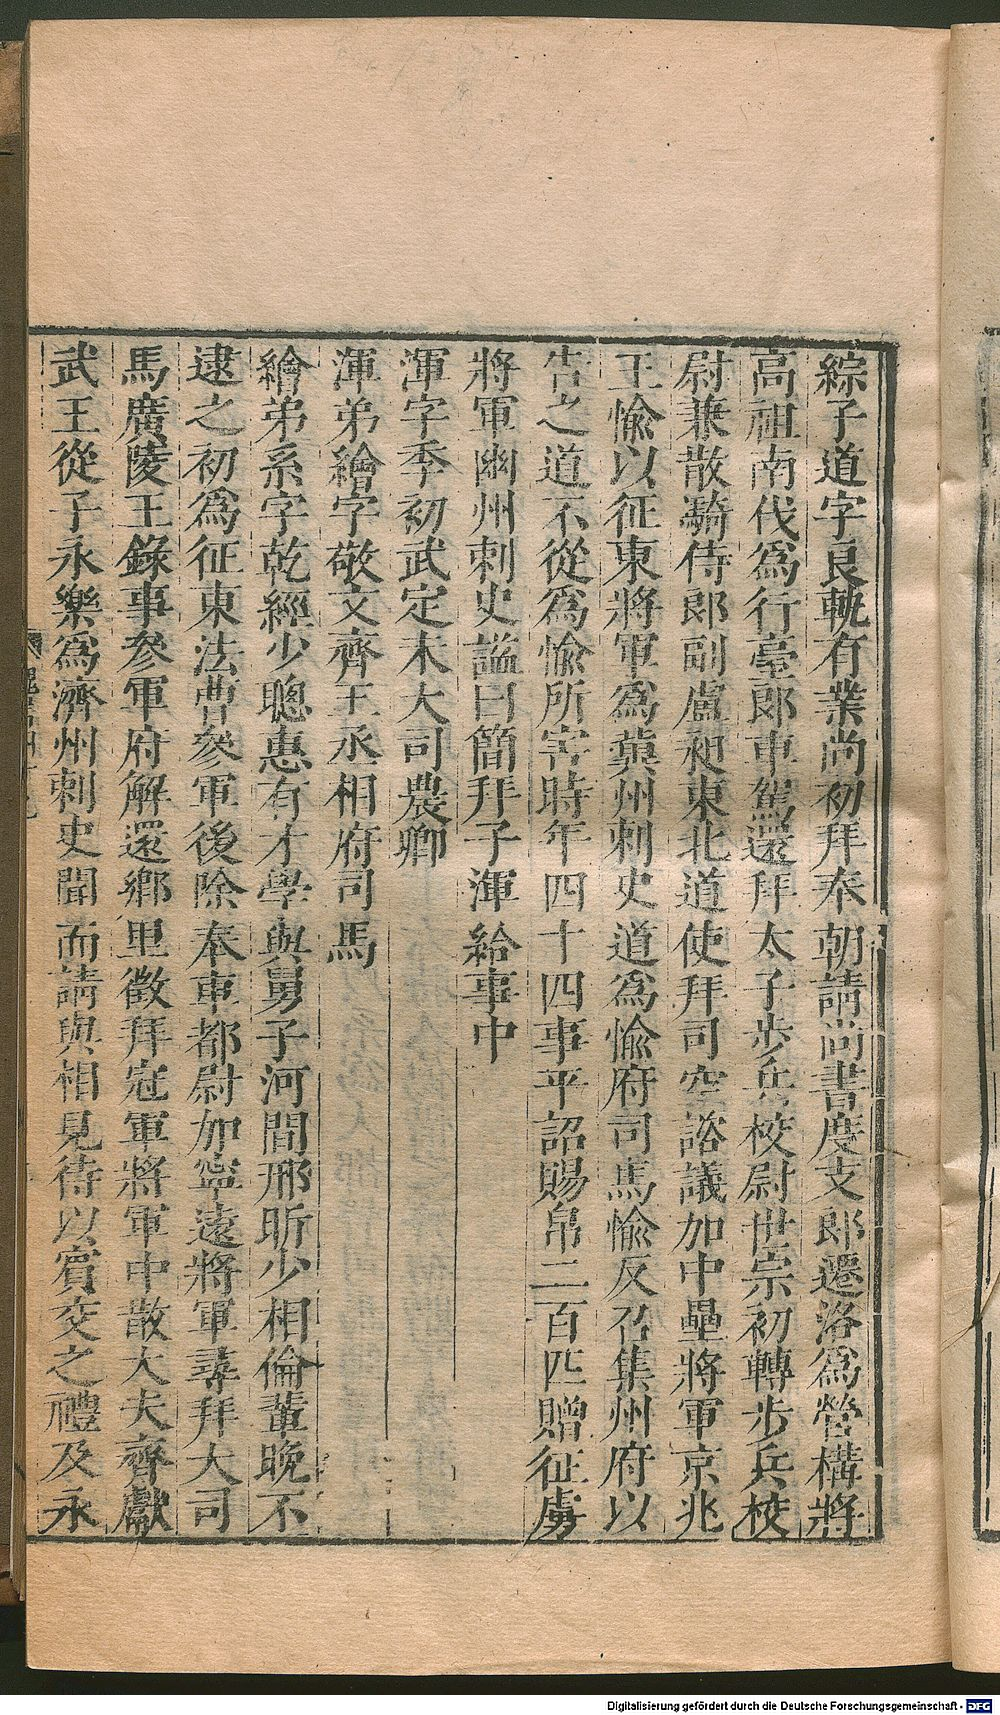 綜子道字良軌有業尚初拜奉朝請尚書度支郎遷洛爲營構將
高祖南伐爲行臺郎車駕還拜太子步兵校尉世宗初轉步兵校
尉兼散騎侍郎副盧昶東北道使拜司空諮議加中壘將軍京兆
王愉以征東將軍爲冀州刺史道爲愉府司馬愉反召集州府以
告之道不從爲愉所害時年四十四事平詔賜帛二百匹贈征虜
將軍幽州刺史謚曰簡拜子渾給事中
渾字季初武定末大司農卿
渾弟繪字敬文齊王丞相府司馬
繪弟系字乾經少聰惠有才學與舅子河間邢昕少相倫輩晚不
逮之初爲征東法曹參軍後除奉車都尉加寧遠將軍尋拜大司
馬廣陵王錄事參軍府解還鄉里徵拜冠軍將軍中散大夫齊獻
武王從子永樂爲濟州刺史聞而請與相見待以賓交之禮及永
Digitalisierung gefördert durch die Deutsche Forschungsgemeinschaft - DFG